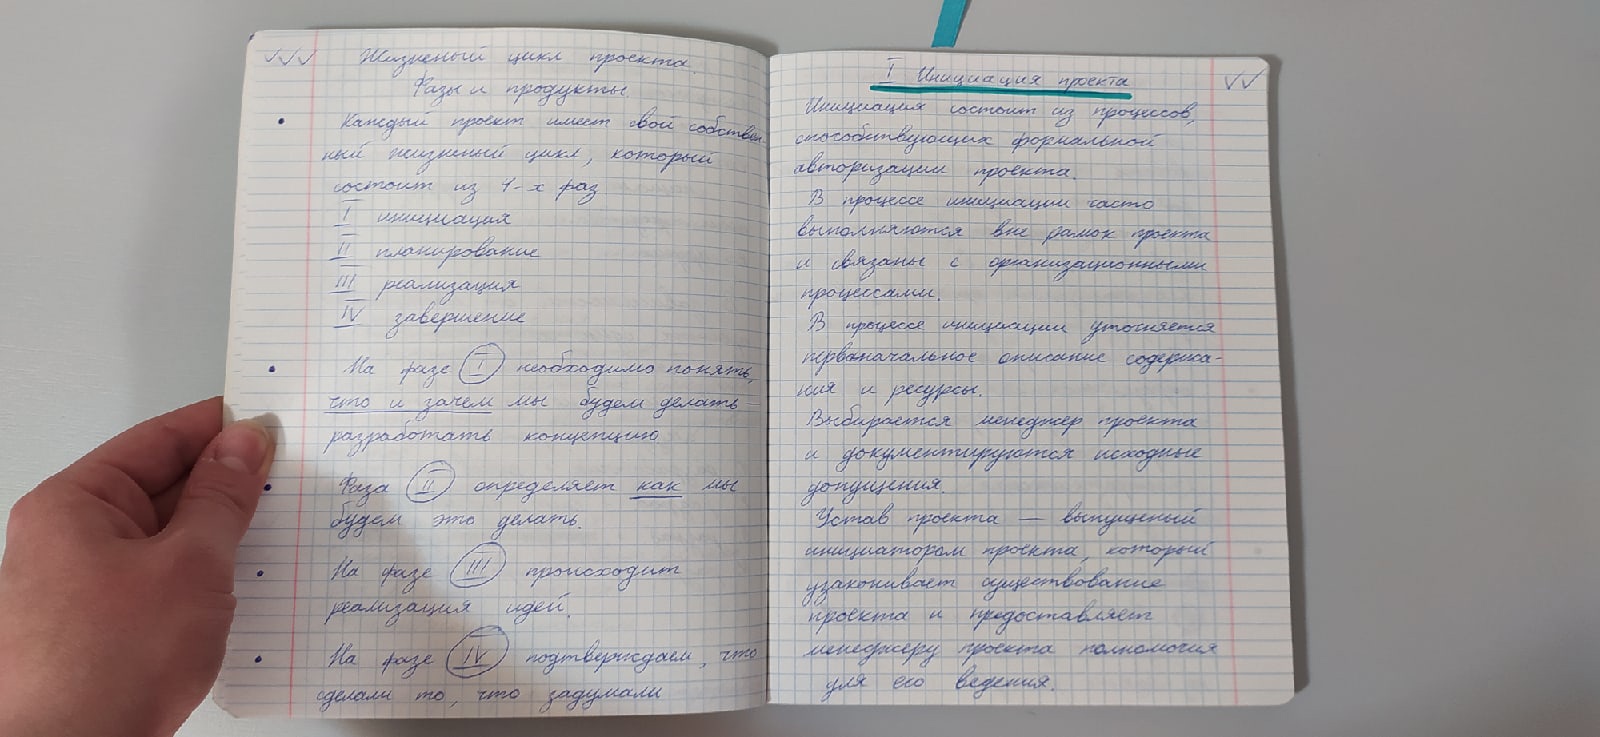 Жизненый цикл проекта.
Фазы и продукты.
Каждый проект имеет свой собствен
ный жизненый цикл, который
состоит из 4-х фаз.
I инициация
II планирование
III реализация
IV завершение
На фазе I необходимо понять,
что и зачем мы будем делать
разработать концепцию.
Фаза II определяет как мы
будем это делать.
На фазе III происходит
реализация идей.
На фазе IV подтверждаем, что
сделали то, что задумали
I Инициация проекта
Инициация состоит из процессов,
способствующих формальной
авторизации проекта.
В процессе инициации часто
выполняются вне рамок проекта
и связаны с организационными
процессами.
В процессе инициации уточняется
первоначальное описание содержа-
ния и ресурсы.
Выбирается менеджер проекта
и документируются исходные
допущения.
Устав проекта — выпущеный
инициатором проекта, который
узаконивает существование
проекта и предоставляет
менеджеру проекта полномочия
для его ведения.